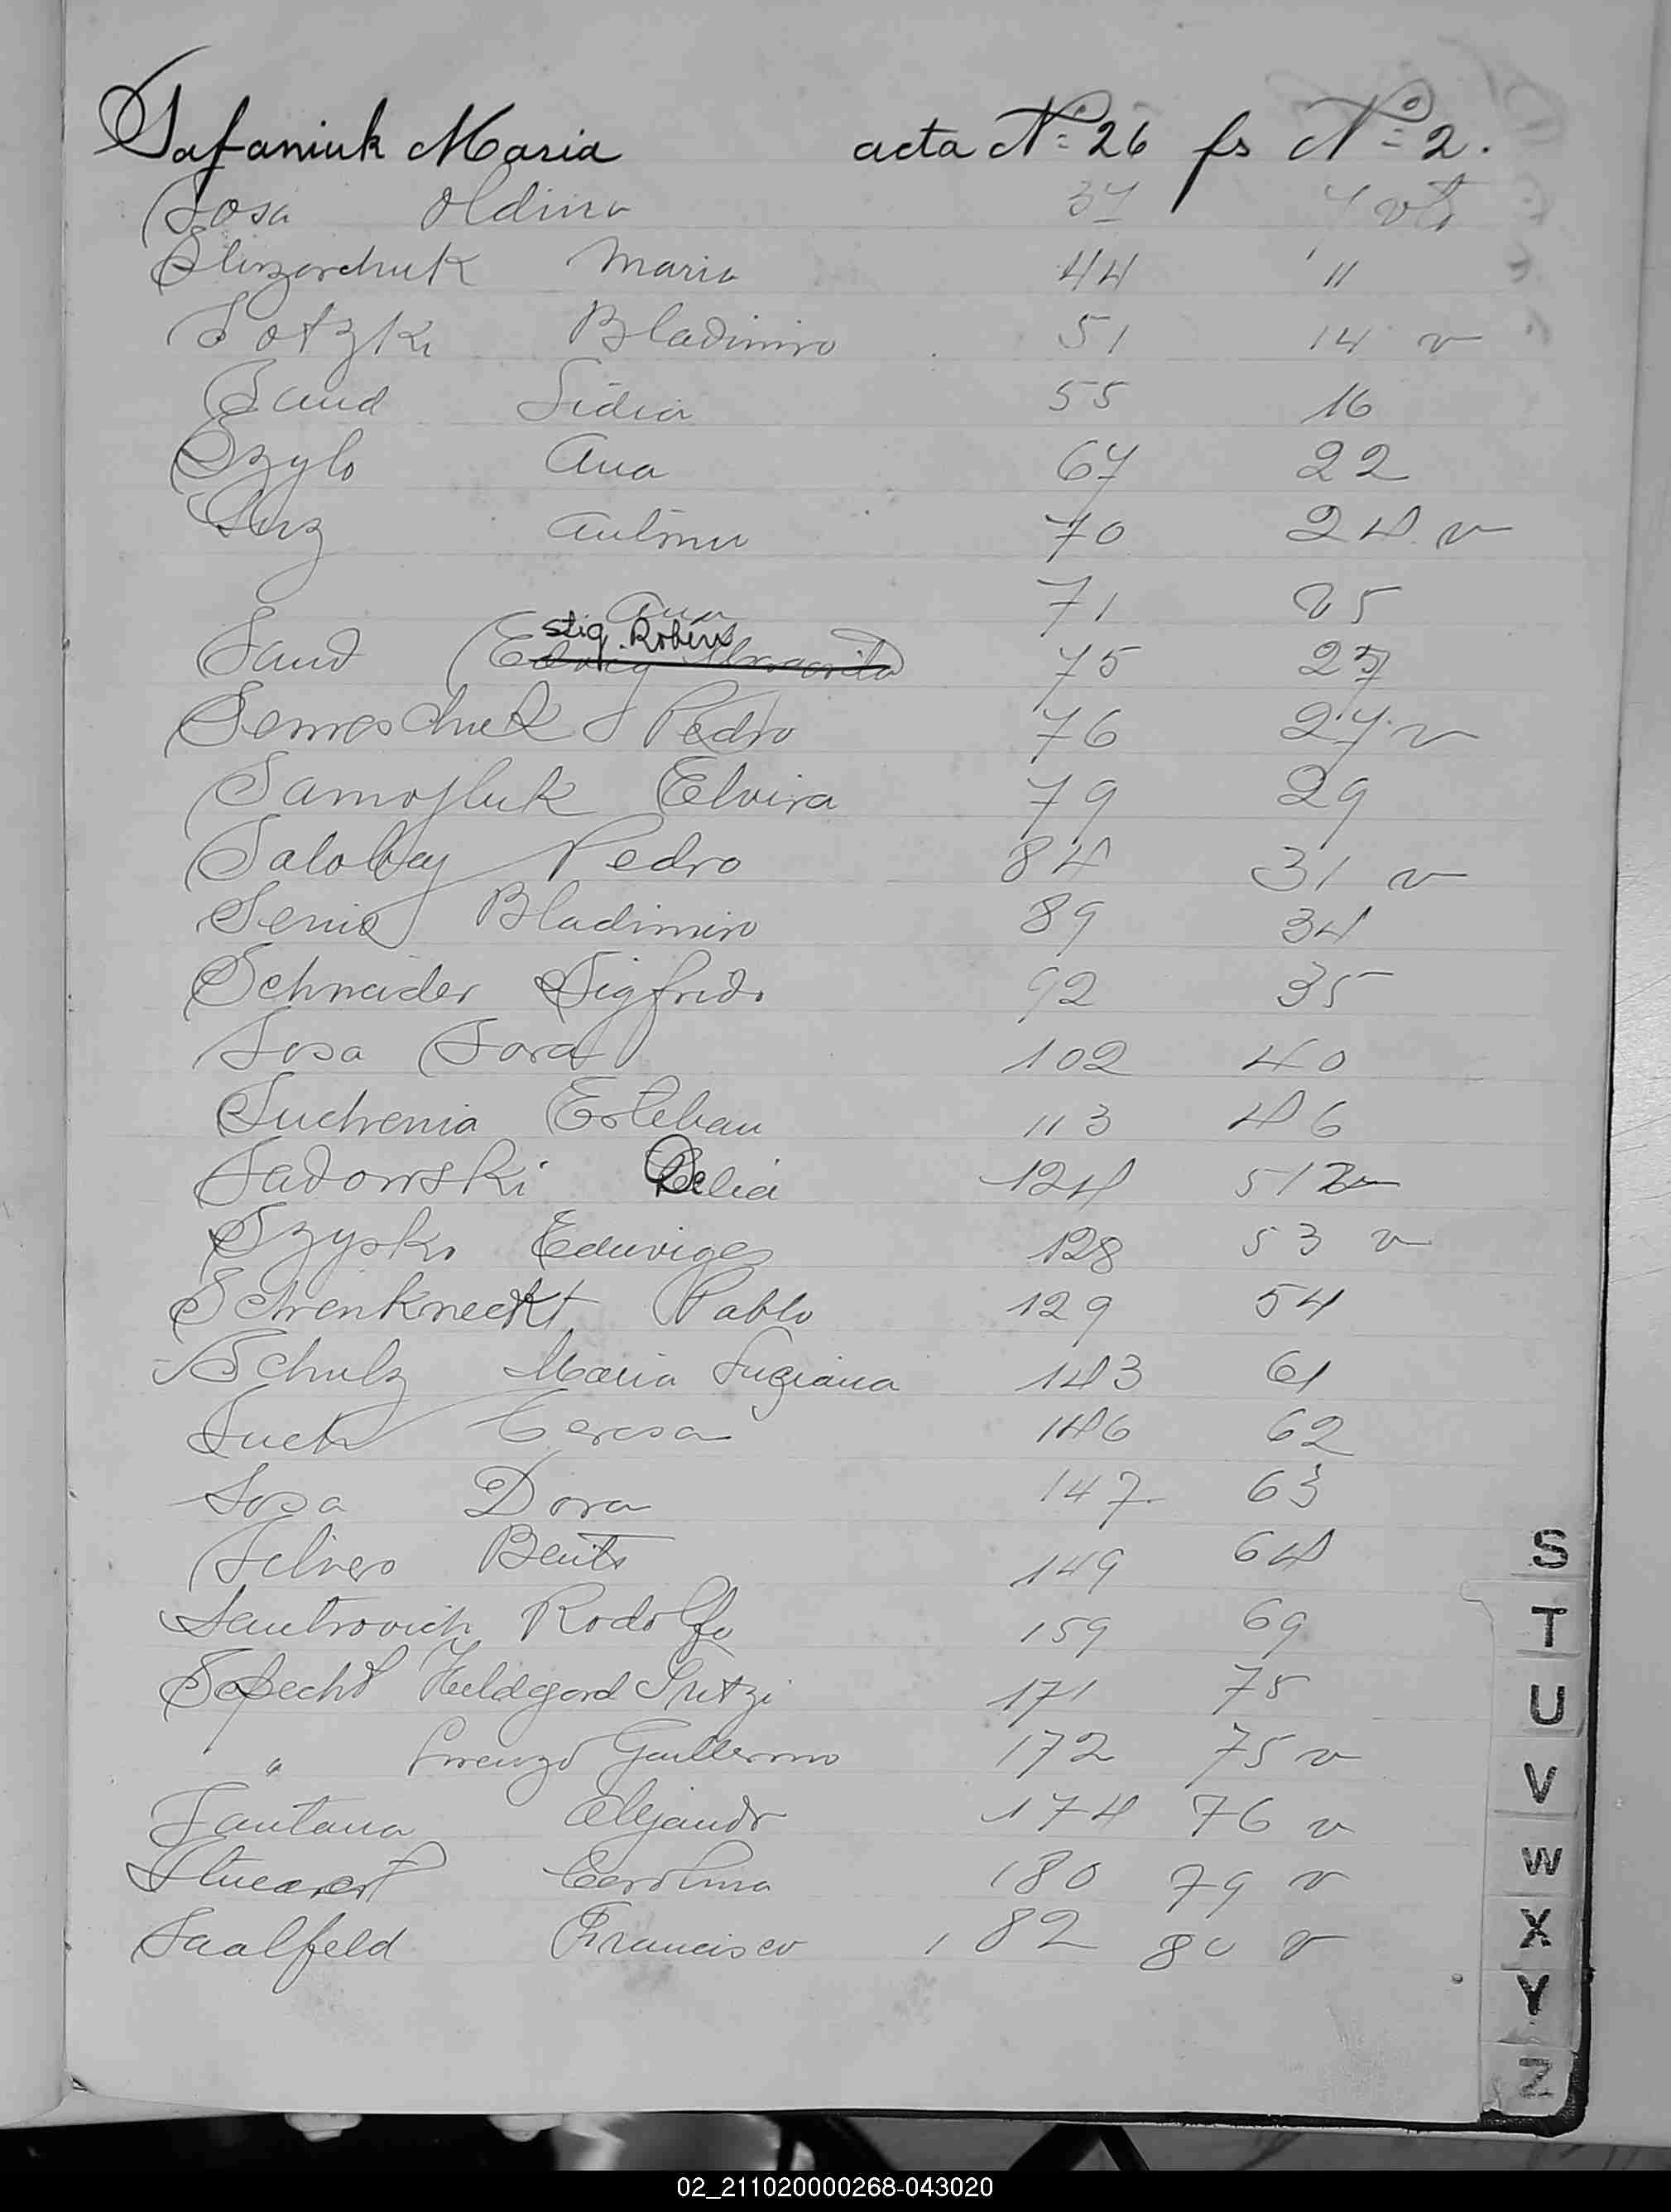 Safaniuk Maria acta Nº 26 fs Nº 2.
Sosa Oldina 37 7 vta
Slinzarchuk Maria 44 11
Sotzki Bladimiro 51 14 v
Sand Lidia 55 16
Szylo Ana 67 22
Suz Antonu 70 24 v
Ana 71 25
stig. Robert
Sand 75 27
Semeschuk Pedro 76 27 v
Samojluk Elvira 79 29
Salobay Pedro 84 31 v
Senio Bladimiro 89 34
Schneider Sigfrido 92 35
Sosa Sara 102 40
Suchenia Esteban 113 46
Sadowski Delia 124 51
Szysko Eduviges 128 53 v
Schenkneckt Pablo 129 54
Schulz Maria Luziana 143 61
Suck Teresa 146 62
Sosa Dora 147 63
Silvero Benito 149 64
Santrovich Rodolfo 159 69
Specht Heldgard Mitzi 171 75
" Lorenzo Guillermo 172 75 v
Santana Alejandro 174 76 v
Stuexert Carolina 180 79 v
Saalfeld Francisco 182 80 v
S
T
U
V
W
X
Y
Z
02_211020000268-043020